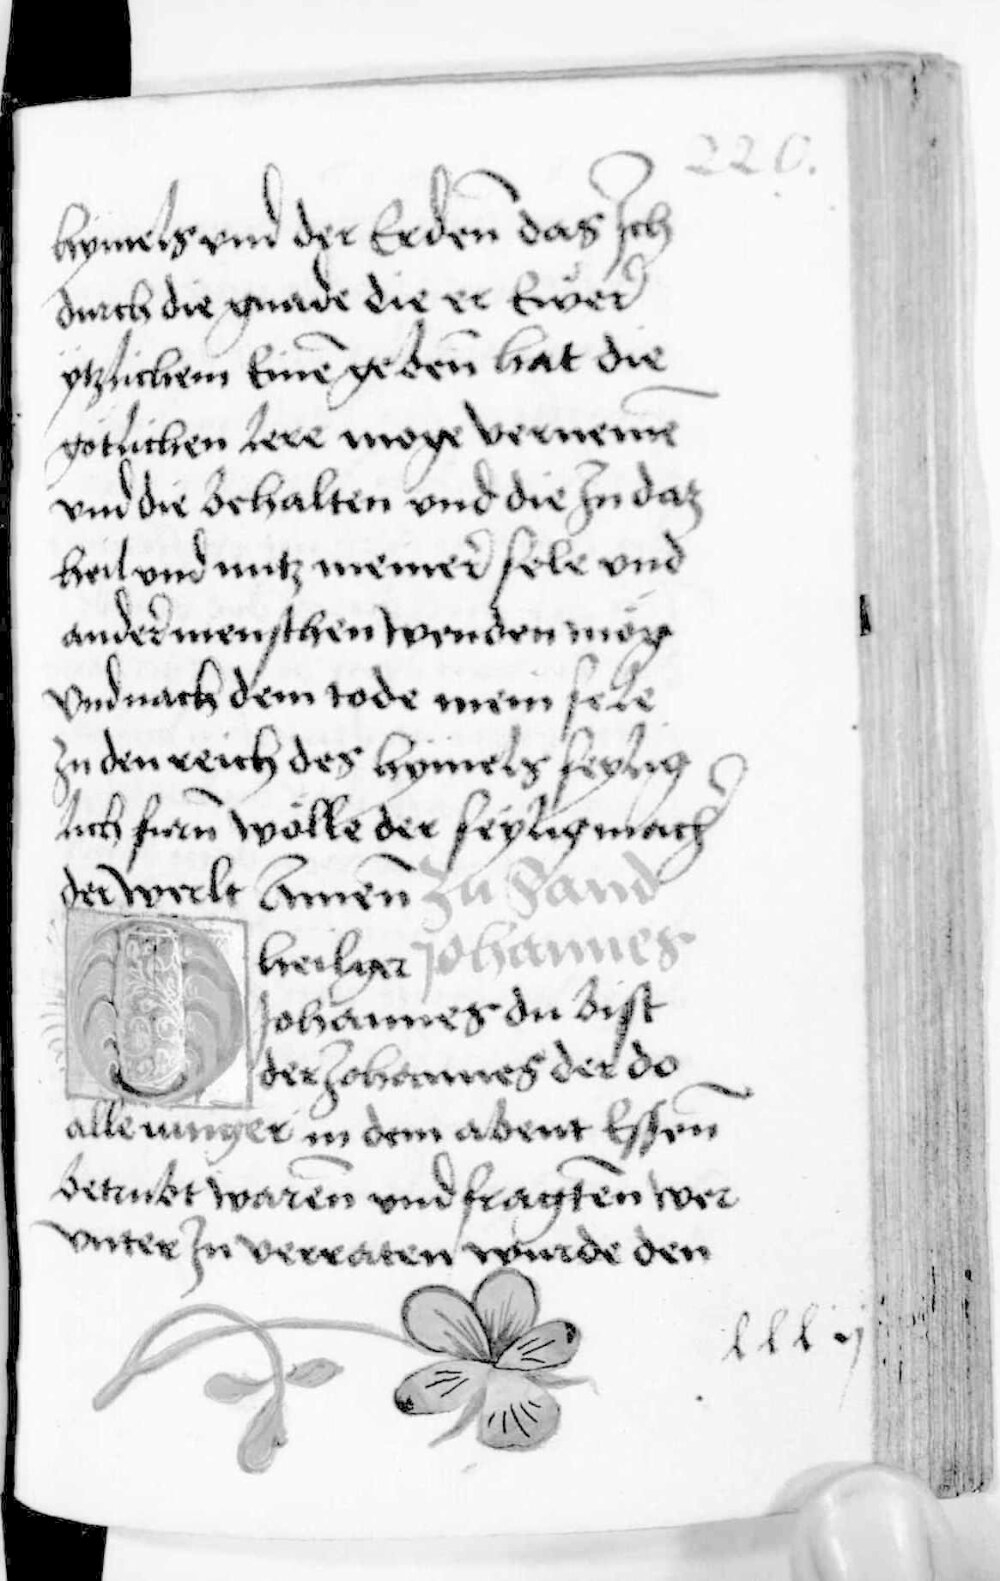 220.
hymels vnd der Erden̄ das Ich
durch die gnade die er Ewer
ytzlichem Eine̅ geben̄ hat die
götlichen lere moge verneme̅
vnd die behalten vnd die Zu daz
heil vnd nutz meiner sele vnd
ander menschen wenden mög
Vnd nach dem tode mein sele
Zu den reich des hymels seylig
lich furn̄ wölle der seyligmach
der werlt Amen̄ Zu Sand
heiliger Johannes
Johannes du bist
der Johannes der do
alle iunger in dem abent Essen̄
betrubt waren̄ vnd fragten̄ wer
vnter In verraten wurde den
lll ij